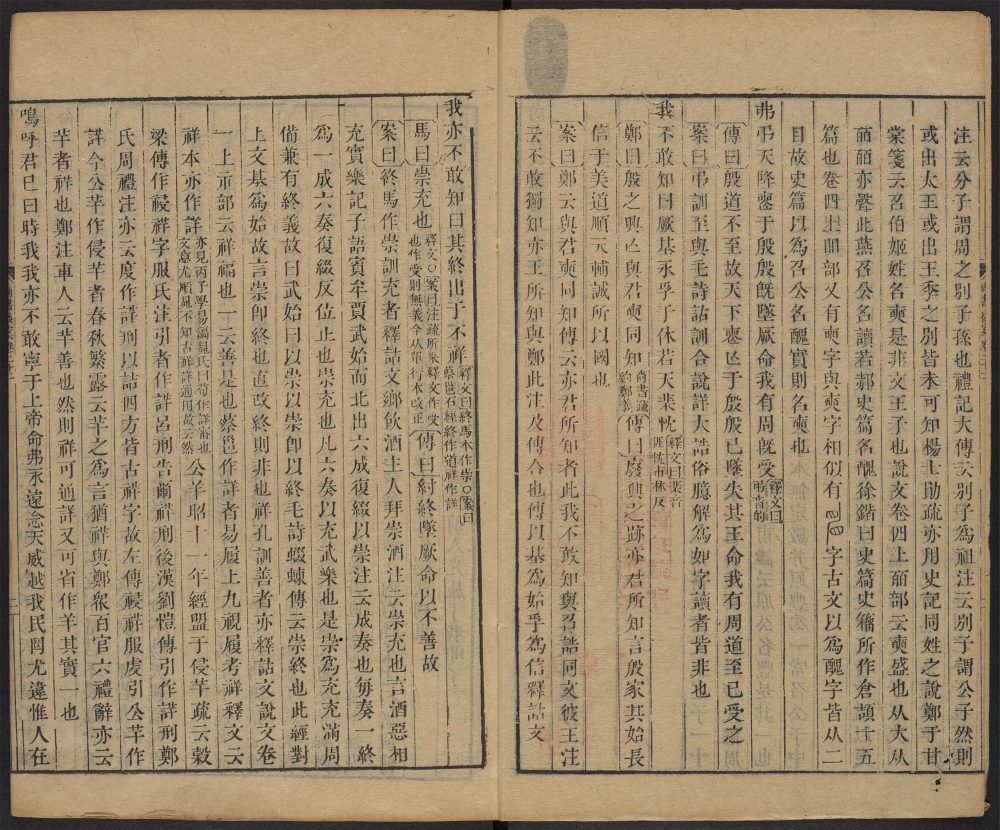 注云分子謂周之別子孫也禮記大傳云別子爲祖注云別子謂公子然則
或出大王或出王季之別皆未可知楊士勛疏亦用史記同姓之說鄭于甘
棠箋云召伯姬姓名奭是非文王子也說文卷四上皕部云奭盛也从大从
皕皕亦聲此燕召公名讀若郝史篇名醜徐鍇曰史篇史籒所作倉頡十五
篇也卷四上䀠部又有奭字與奭字相似有䀠字古文以爲醜字皆从二
目故史篇以爲召公名醜實則名奭也
弗弔天降喪于殷殷旣墜厥命我有周旣受釋文曰弔音的
傳曰殷道不至故天下喪亡于殷殷已墜失其王命我有周道至已受之
案曰弔訓至與毛詩詁訓合說詳大誥俗臆解爲如字讀者皆非也
我不敢知曰厥基永孚于休若天棐忱釋文曰棐音匪忱市林反
鄭曰殷之興亡與君奭同知尚書疏約鄭義傳曰廢興之跡亦君所知言殷家其始長
信于美道順天輔誠所以國也
案曰鄭云與君奭同知傳云亦君所知者此我不敢知與召誥同文彼王注
云不敢獨知亦王所知與鄭此注及傳合也傳以基爲始孚爲信釋詁文
我亦不敢知曰其終出于不祥釋文曰終馬本作崇○案曰蔡邕石經終作道祥作詳
馬曰崇充也釋文○案曰注疏所采釋文作受也作受則無義今从單行本改正傳曰紂終墜厥命以不善故
案曰終馬作崇訓充者釋詁文鄉飲酒主人拜崇酒注云崇充也言酒惡相
充實樂記子語賓牟賈武始而北出六成復綴以崇注云成奏也每奏一終
爲一成六奏復綴反位止也崇充也凡六奏以充武樂也是崇爲充充滿周
備兼有終義故曰武始曰以崇以崇卽以終毛詩蝃蝀傳云崇終也此經對
上文基爲始故言崇卽終也直改終則非也祥孔訓善者亦釋詁文說文卷
一上示部云祥福也一云善是也蔡邕作詳者易履上九視履考祥釋文云
祥本亦作詳亦見丙子學易編晁氏曰荀作詳審也文意尤順晁不知古祥詳通用故云然公羊昭十一年經盟于侵羊疏云穀
梁傳作祲祥字服氏注引者作詳呂刑告爾祥刑後漢劉愷傳引作詳刑鄭
氏周禮注亦云度作詳刑以詰四方皆古祥字故左傳祲祥服虔引公羊作
詳今公羊作侵羊者春秋繁露云羊之爲言猶祥與鄭衆百官六禮辭亦云
羊者祥也鄭注車人云羊善也然則祥可通詳又可省作羊其實一也
嗚呼君已曰時我我亦不敢寧于上帝命弗永遠念天威越我民罔尤違惟人在